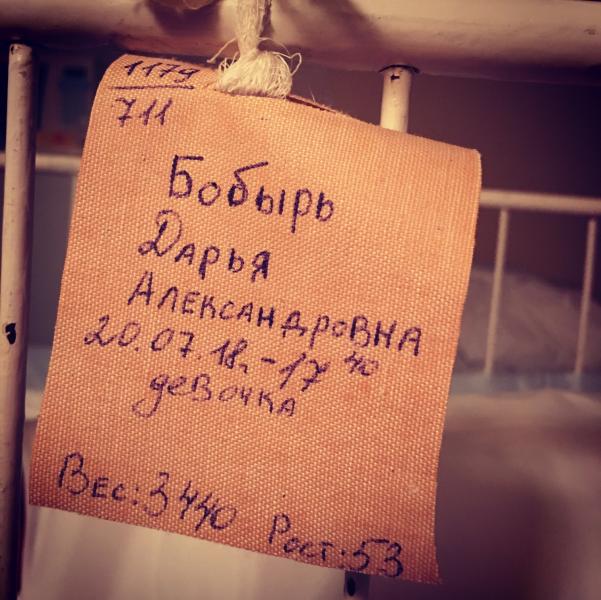 1179
711
Бобырь
Дарья
Александровна
20.07.18.-17 40
девочка
Вес: 3440 Рост: 53